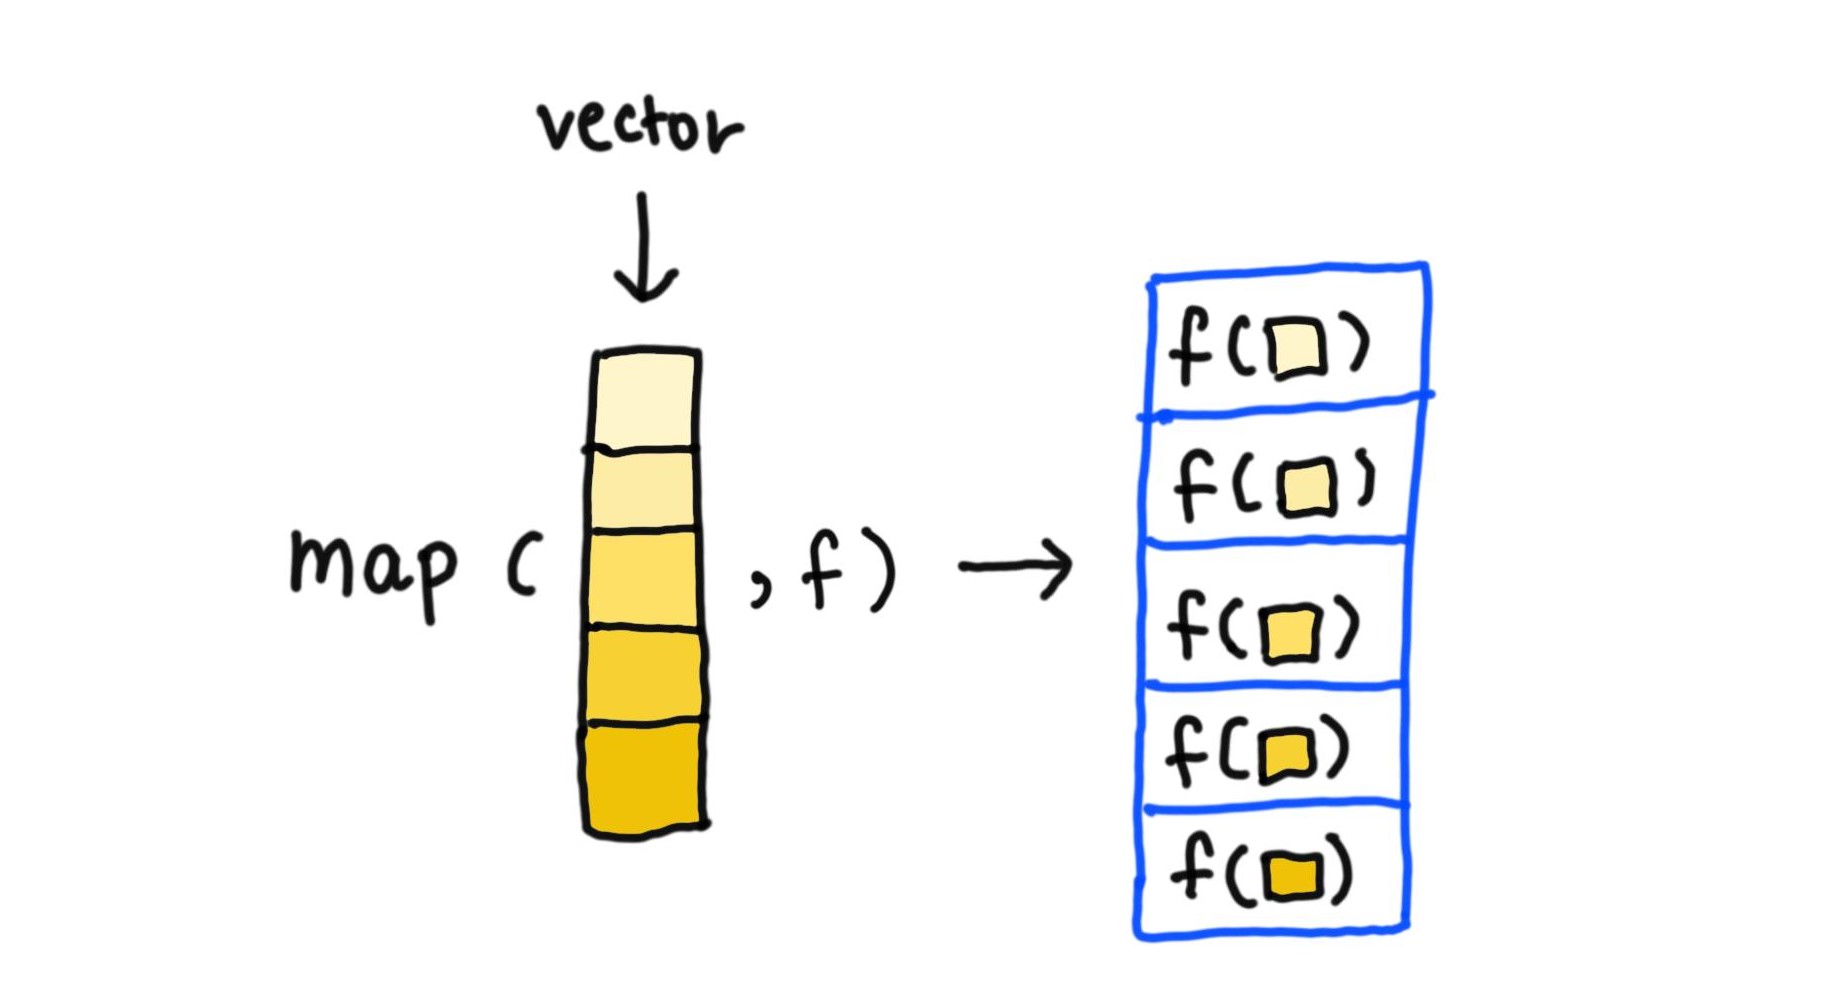 vector
map ( , f) →
f( )
f( )
f( )
f( )
f( )